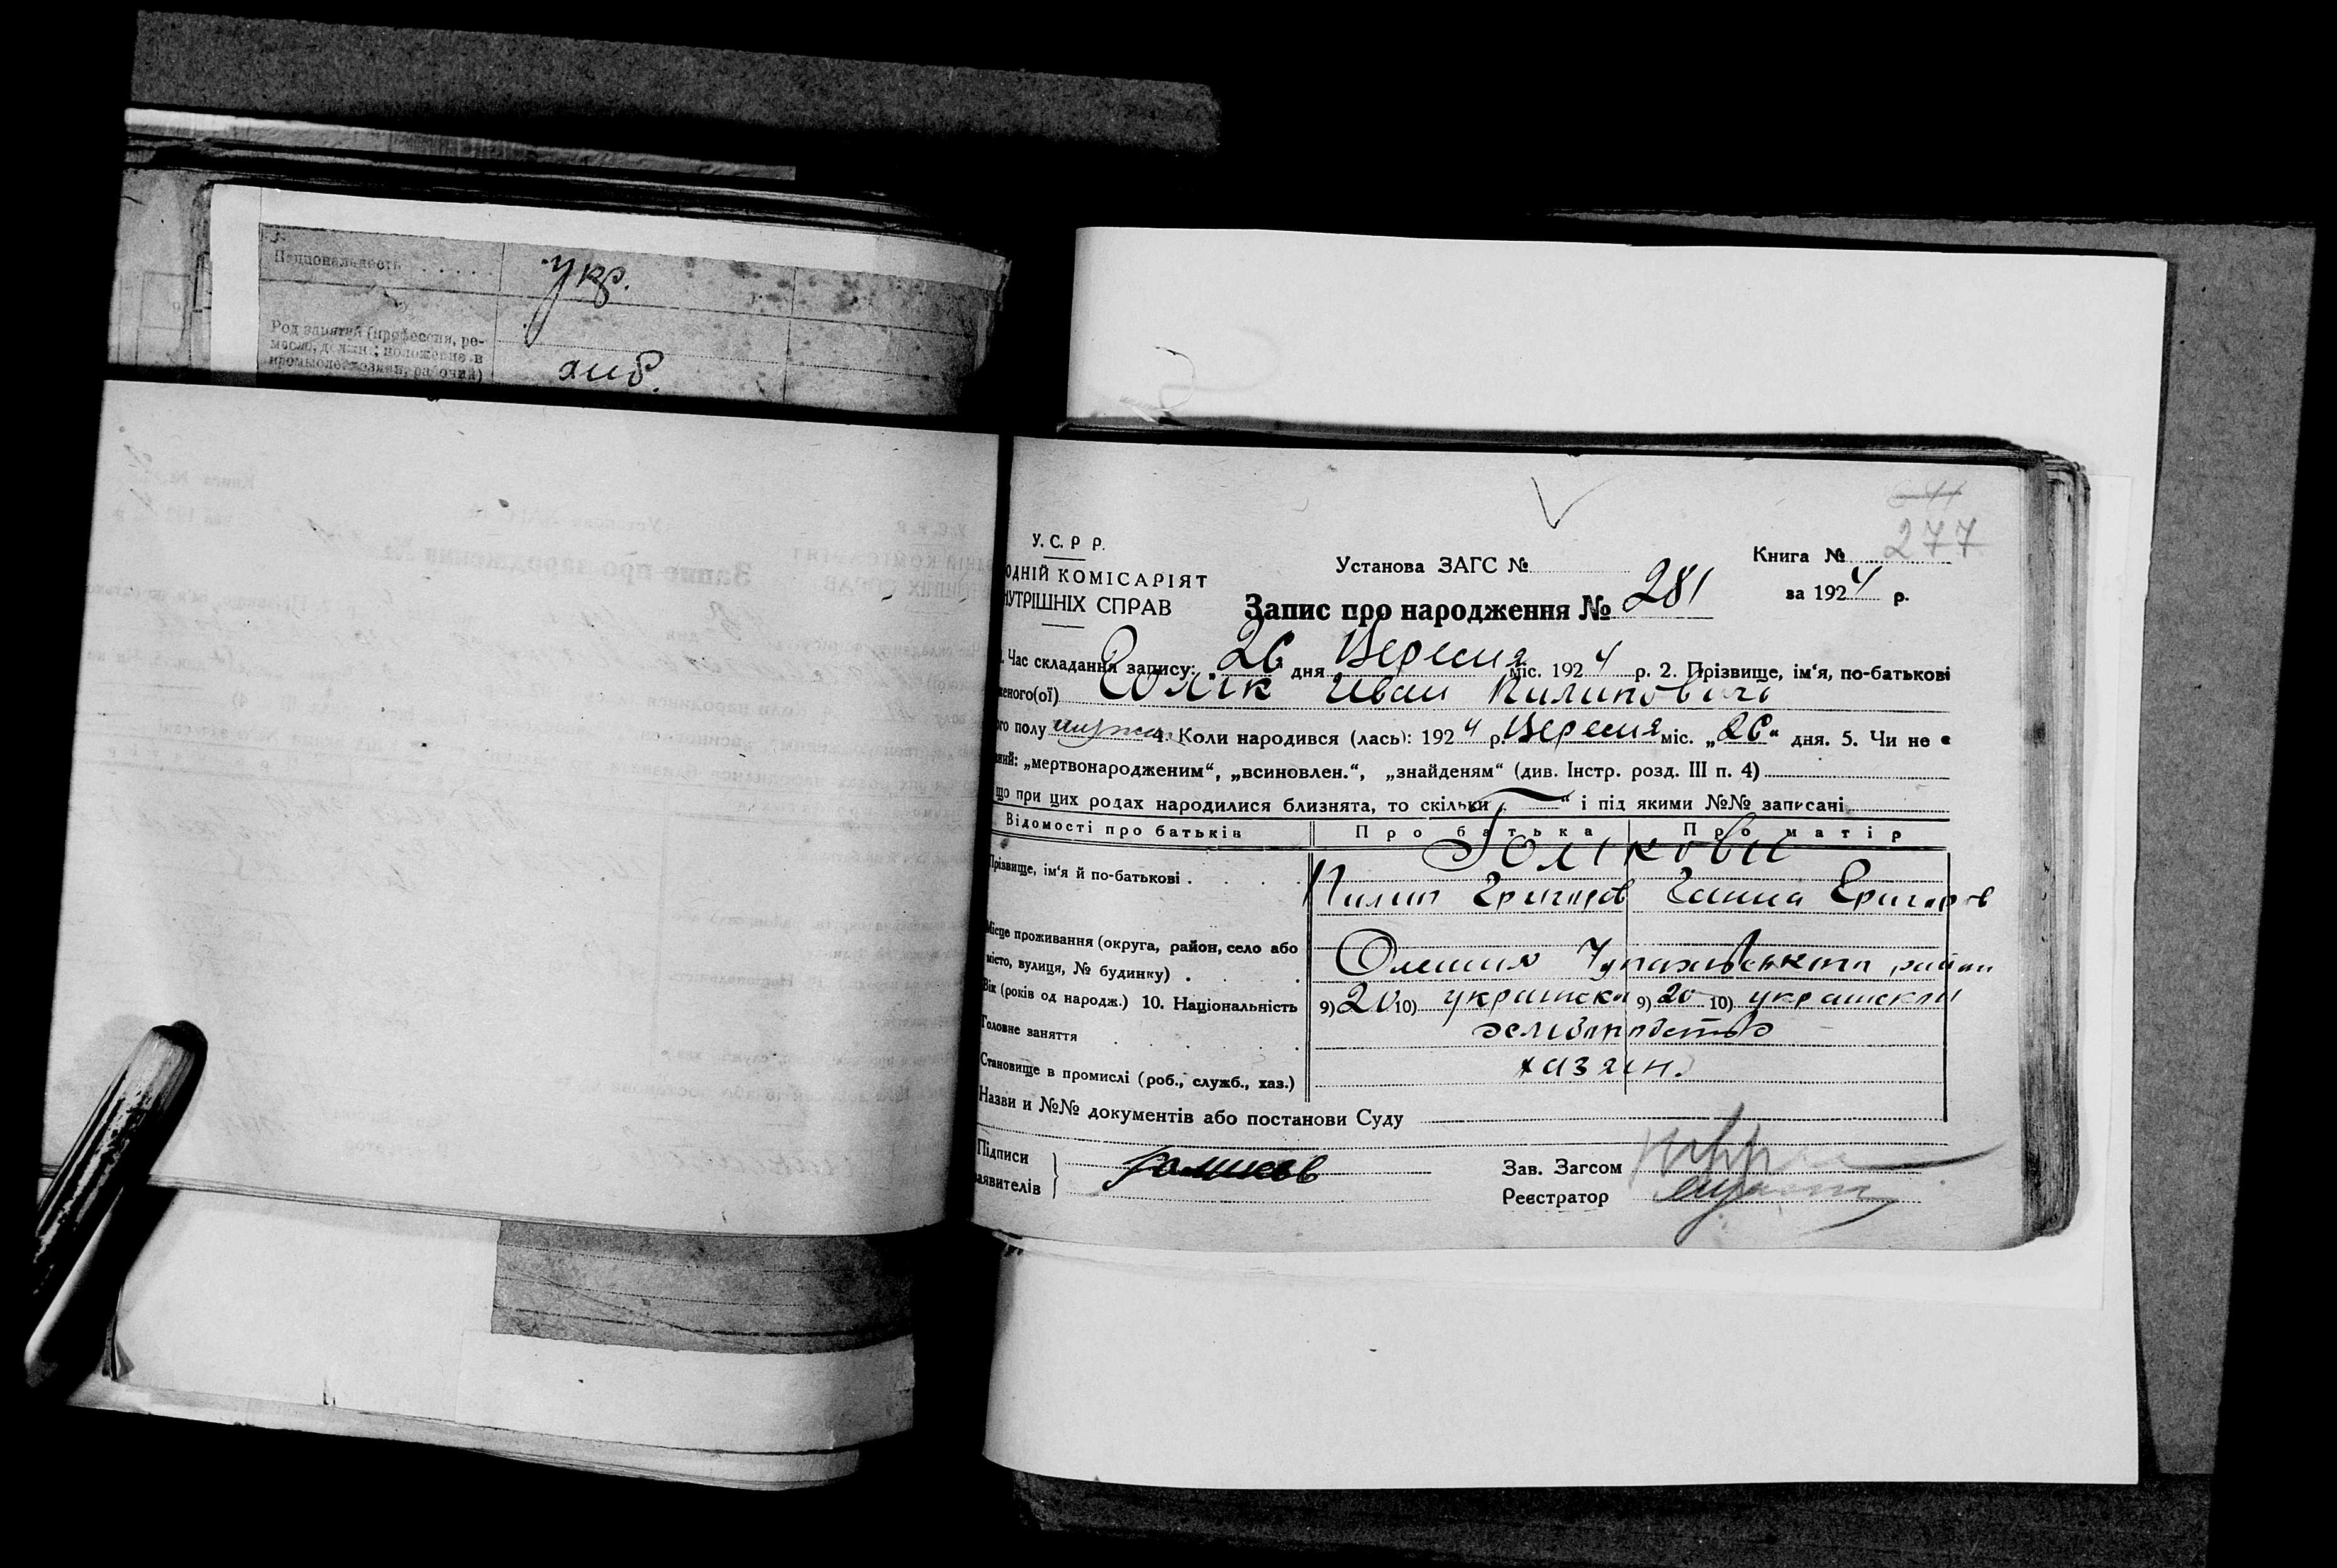 Национальность . . . . .
укр.
Род занятий (профессия, ре-
месло, должн.; положение в
промысле: хозяин, рабочий)
хліб.
277
У. С. Р Р.
ОДНІЙ КОМІСАРІЯТ
НУТРІШНІХ СПРАВ
Установа ЗАГС №
Книга №
за 1924 р.
Запис про народження № 281
Час складання запису: „26" дня Вересня міс. 1924 р. 2. Прізвище, ім'я, по-батькові
еного(ої) Голік Иван Пилипович
го полу мужск 4. Коли народився (лась): 1924 р. Вересня міс. „26" дня. 5. Чи не є
ний: „мертвонародженим", „всиновлен.", „знайденям" (див. Інстр. розд. III п. 4)
що при цих родах народилися близнята, то скільки „—" і під якими №№ записані
Відомості про батьків Про батька Про матір
Голікови
Прізвище, ім'я й по-батькові .
Пилип Григоров Ганна Григоров
Місце проживання (округа, район, село або
місто, вулиця, № будинку) .
район
Вік (років од народж.) 10. Національність 9) 20 10) українска 9) 20 10) українскоі
Головне заняття
хліборобство
Становище в промислі (роб., служб., хаз.)
хазяін.
Назви и №№ документів або постанови Суду
Підписи
заявителів
Голиков
Зав. Загсом
Реєстратор